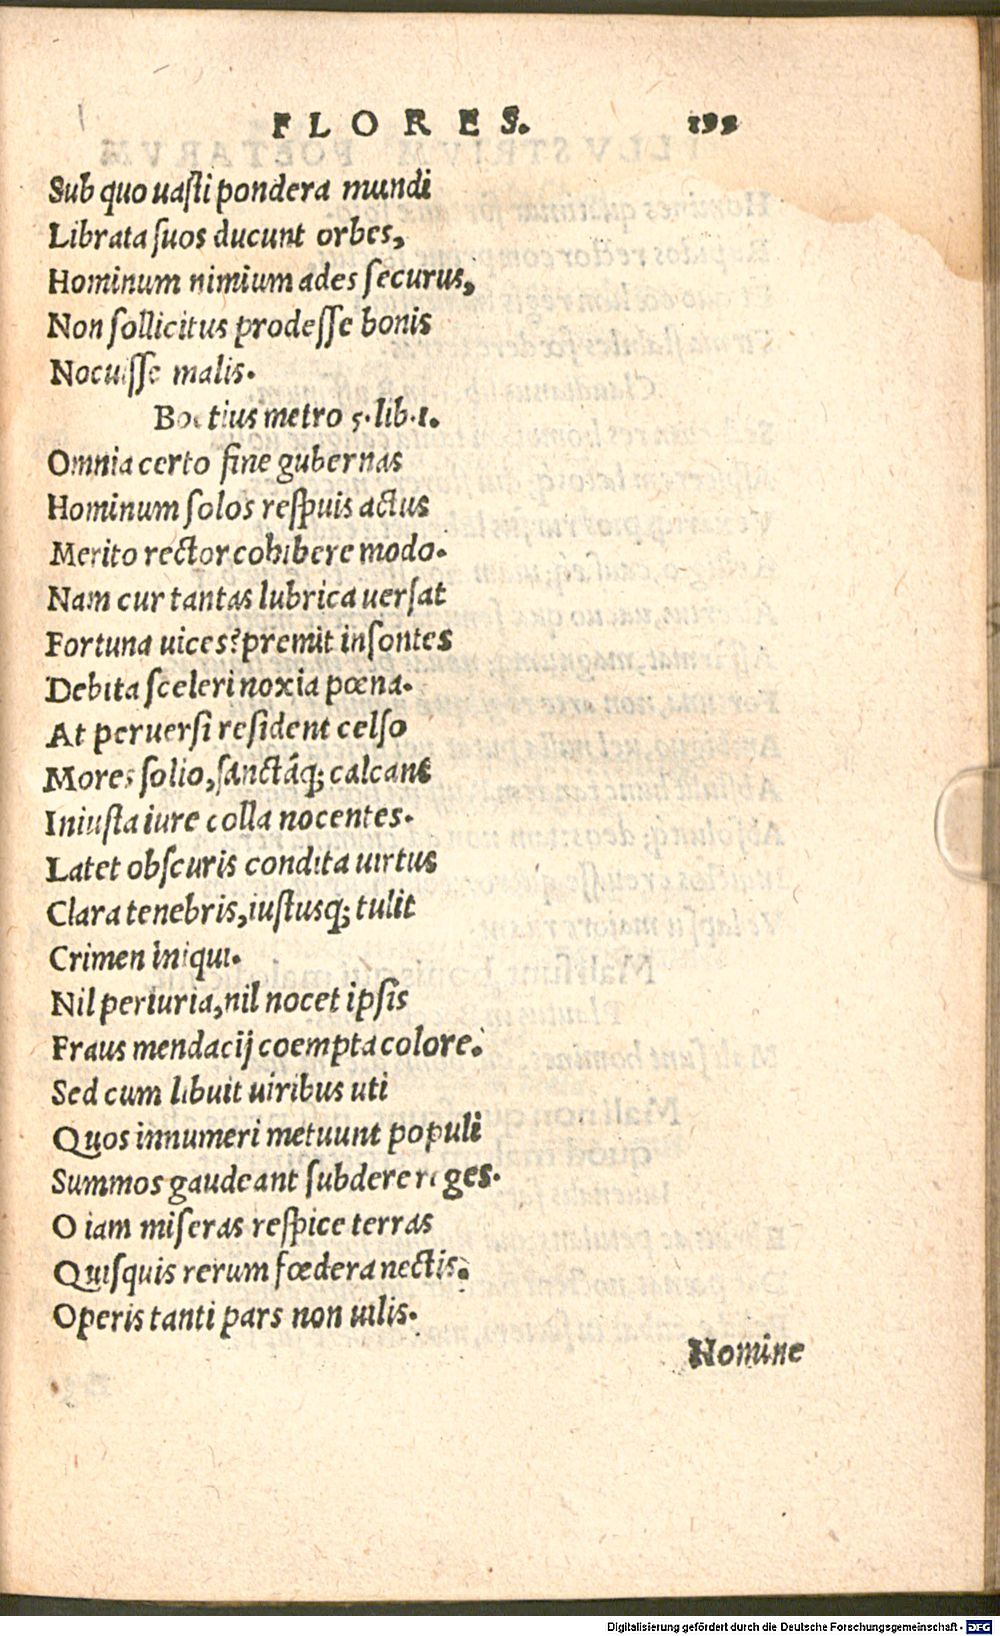 FLORES. 199
Sub quo uasti pondera mundi
Librata suos ducunt orbes,
Hominum nimium ades securus,
Non sollicitus prodesse bonis
Nocuisse malis.
Boetius metro 5. lib. 1.
Omnia certo fine gubernas
Hominum solos respuis actus
Merito rector cohibere modo.
Nam cur tantas lubrica uersat
Fortuna uices? premit insontes
Debita sceleri noxia pœna.
At peruersi resident celso
Mores solio, sanctáq; calcant
Iniusta iure colla nocentes.
Latet obscuris condita uirtus
Clara tenebris, iustusq; tulit
Crimen iniqui.
Nil periuria, nil nocet ipsis
Fraus mendacij coempta colore.
Sed cum libuit uiribus uti
Quos innumeri metuunt populi
Summos gaudeant subdere reges.
O iam miseras respice terras
Quisquis rerum fœdera nectis.
Operis tanti pars non uilis.
Nomine
Digitalisierung gefördert durch die Deutsche Forschungsgemeinschaft - DFG